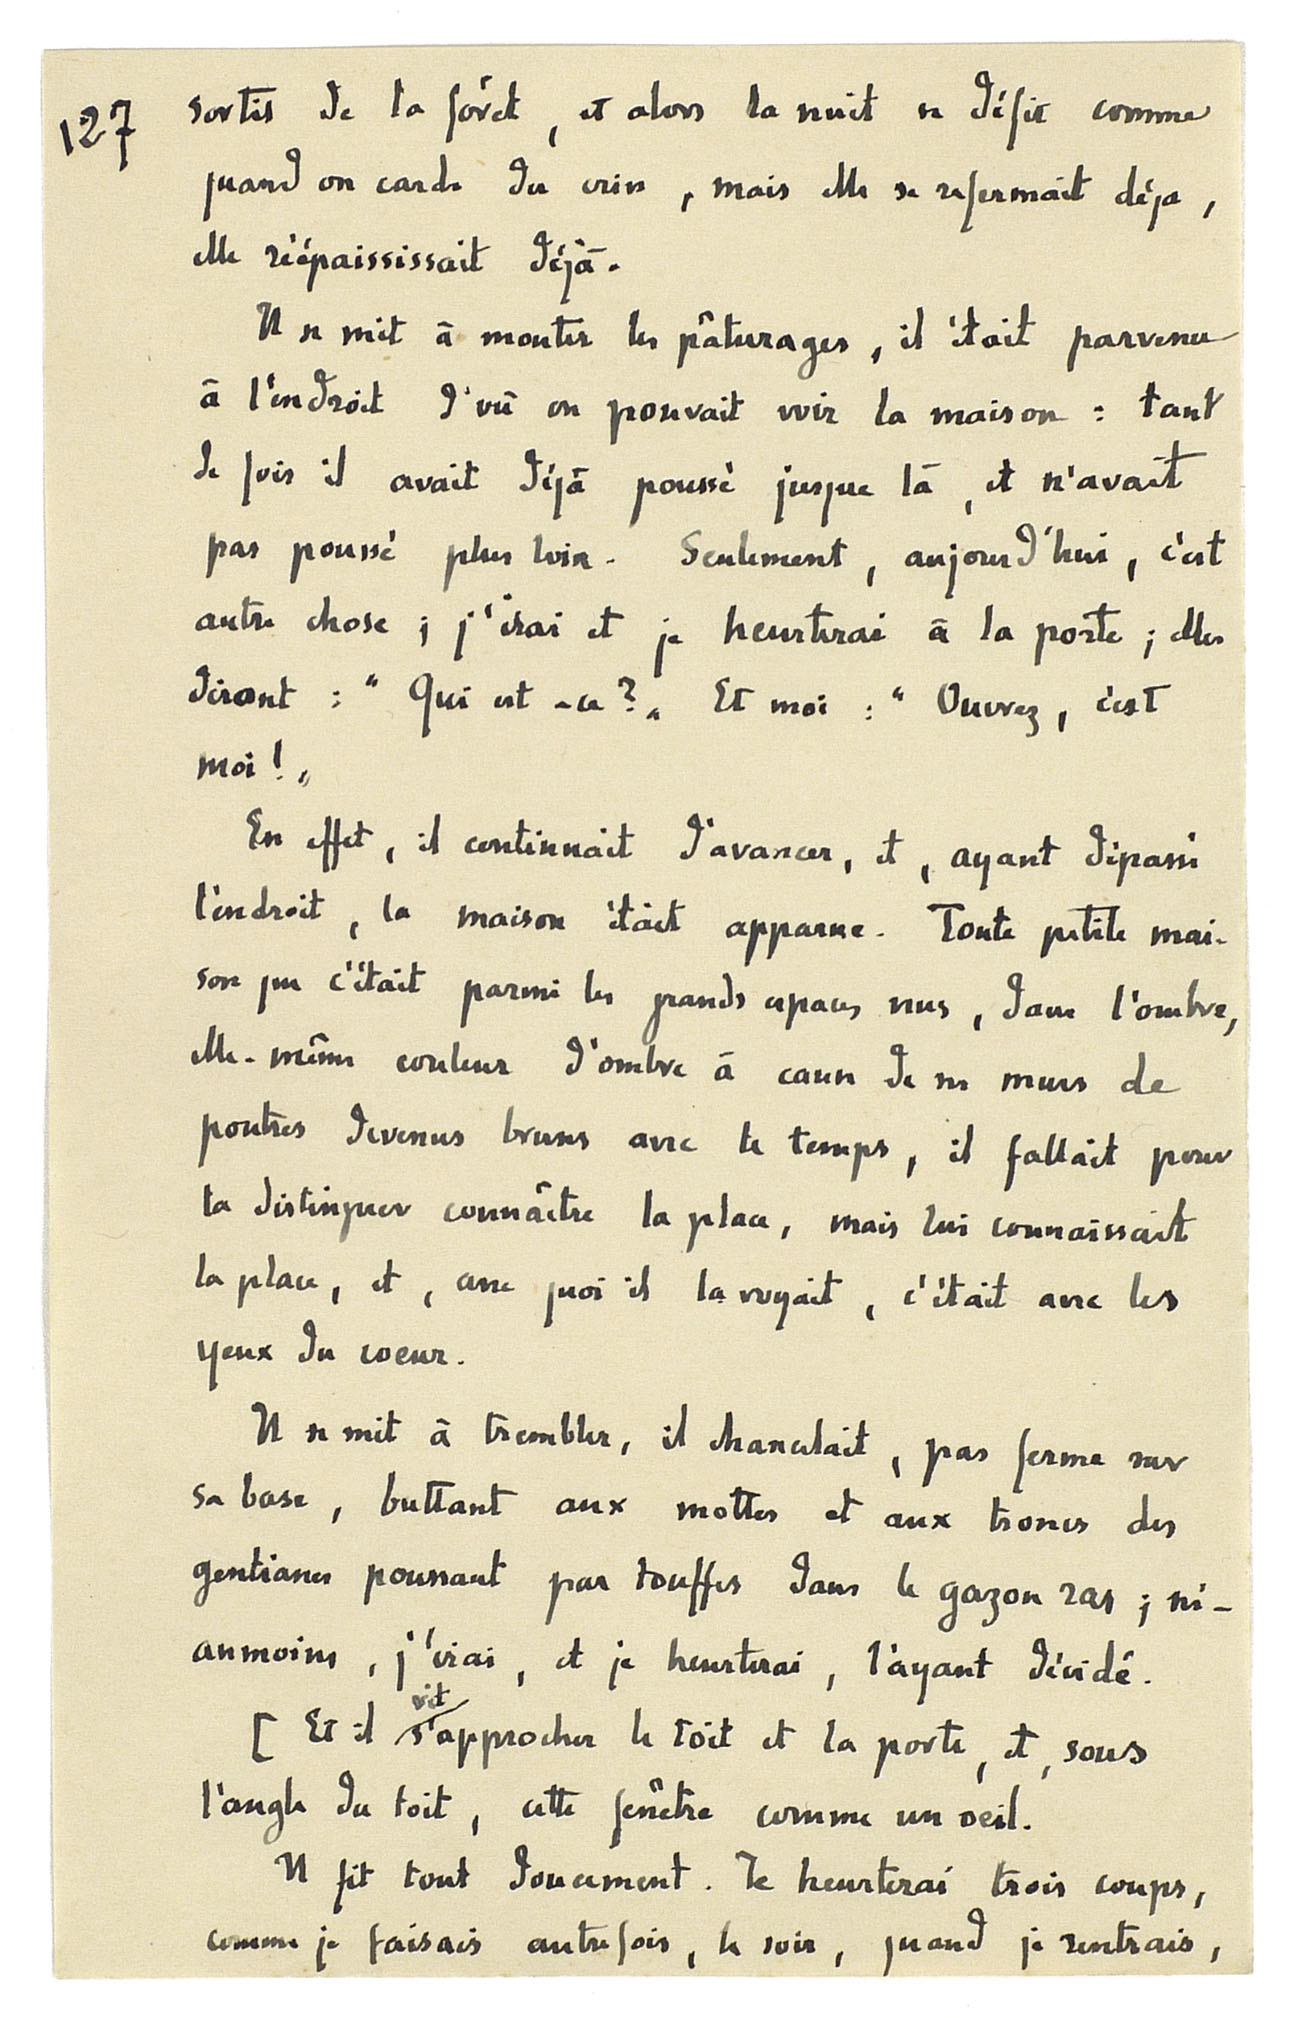 127
sortit de la forêt, et alors la nuit se défit comme
quand on carde du crin, mais elle se refermait déjà,
elle réépaississait déjà.
Il se mit à monter les pâturages, il était parvenu
à l'endroit d'où on pouvait voir la maison : tant
de fois il avait déjà poussé jusque là, et n'avait
pas poussé plus loin. Seulement, aujourd'hui, c'est
autre chose ; j'irai et je heurterai à la porte ; elles
diront : " Qui est-ce ? " Et moi : " Ouvrez, c'est
moi ! "
En effet, il continuait d'avancer, et, ayant dépassé
l'endroit, la maison était apparue. Toute petite mai-
son que c'était parmi les grands espaces nus, dans l'ombre,
elle-même couleur d'ombre à cause de ses murs de
poutres devenus bruns avec le temps, il fallait pour
la distinguer connaître la place, mais lui connaissait
la place, et, avec quoi il la voyait, c'était avec les
yeux du coeur.
Il se mit à trembler, il chancelait, pas ferme sur
sa base, buttant aux mottes et aux troncs des
gentianes poussant par touffes dans le gazon ras ; né-
anmoins, j'irai, et je heurterai, l'ayant décidé.
vit
[ Et il s'approcher le toit et la porte, et, sous
l'angle du toit, cette fenêtre comme un oeil.
Il fit tout doucement. Je heurterai trois coups,
comme je faisais autrefois, le soir, quand je rentrais,